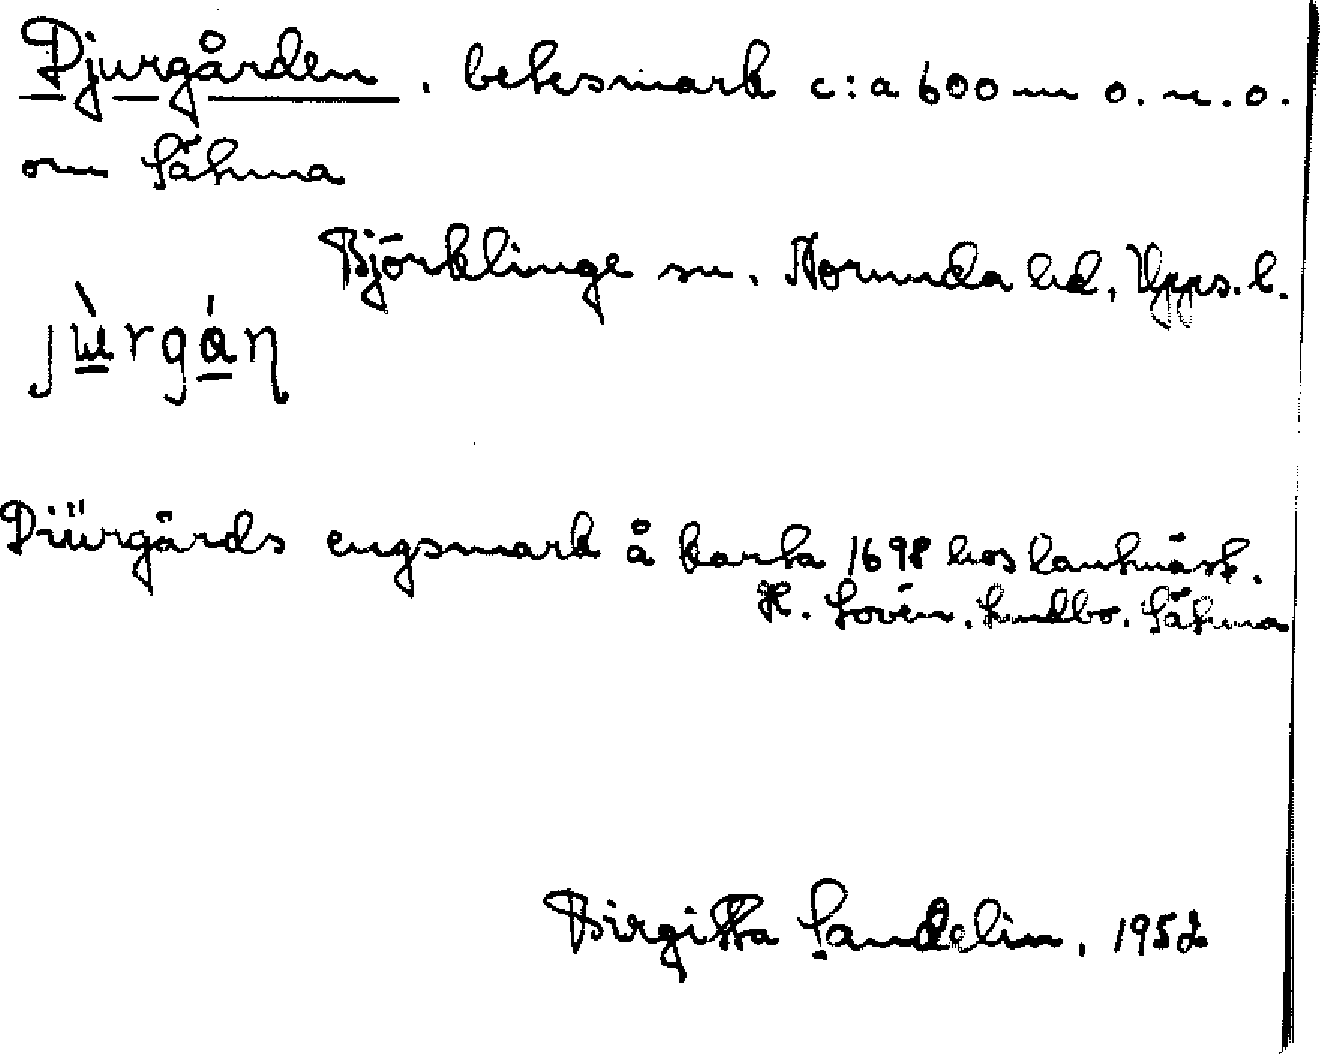 Djurgården, betesmark c:a 600 m o.n.o.
om Sätuna
Björklinge sn. Norunda hd, Upps. l.
jùrgán
Diürgårds engsmark å karta 1698 hos lantmäst.
H. Lovén, Lundbo, Sätuna
Birgitta Sandelin, 1952